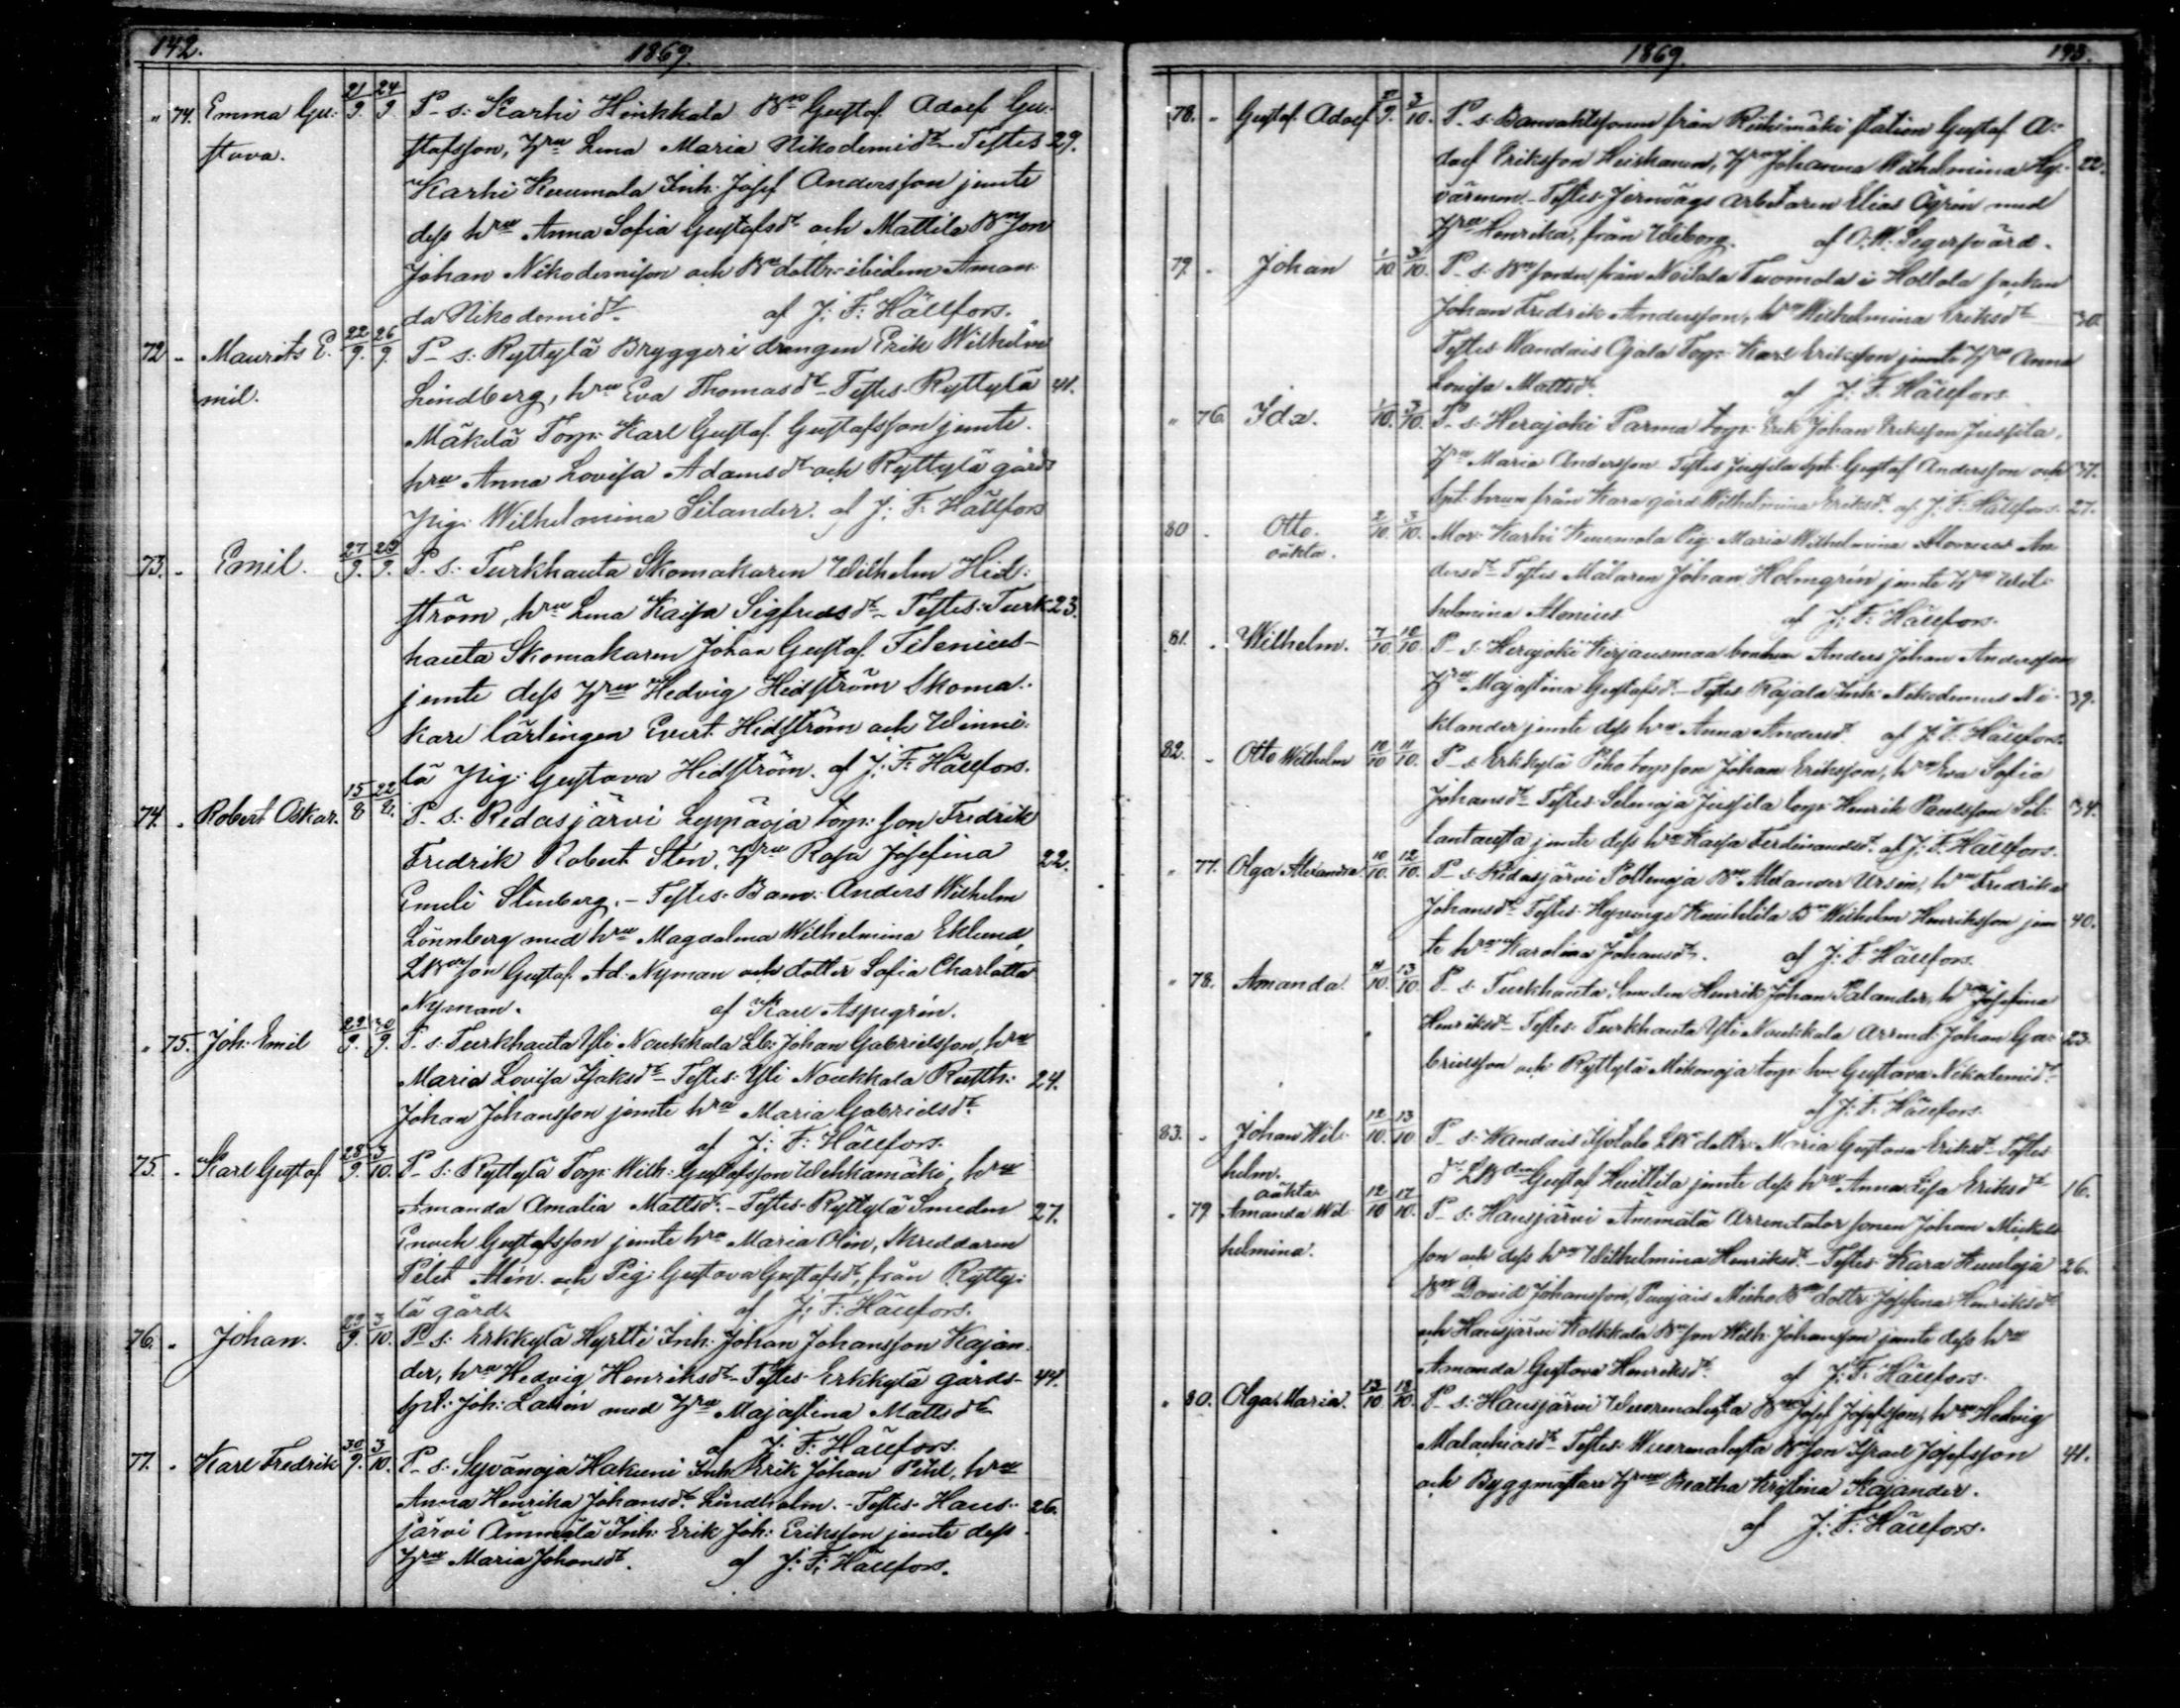 142. 1869.
" 74. Emma Gu: 21/9. 24/9. P. s: Karhi Hinkkala Bn Gustaf Adolf Gu-
stava. stafsson, hru Lena Maria Nikodemidr - Testes 29.
Karhi Kuumola Inh: Josef Andersson jemte
dess hru Anna Sofia Gustafsdr och Mattila Bn son
Johan Nikodemisson och Bn dottr: ibidem Aman-
da Nikodemidr. af J: F: Hällfors.
72 " Maurits E. 22/9. 26/9. P. s: Ryttylä Bryggeri drängen Erik Wilhelm
mil. Lindberg, hru Eva Thomasdr - Testes Ryttylä 41.
Mäkelä Torp: Karl Gustaf Gustafsson jemte
hru Anna Lovisa Adamsdr och Ryttylä gårds
Pig: Wilhelmina Silander. af J: F: Hällfors
73. " Emil. 27/9. 29/9. P. s: Turkhauta Skomakaren Wilhelm Hid-
ström, hru Lena Kaisa Sigfridsdr - Testes: Turk- 23.
hauta Skomakaren Johan Gustaf Filenius
jemte dess hru Hedvig Hidström Skoma-
kare lärlingen Evert Hidström och Winni-
lä Pig: Gustava Hidström. af J: F: Hällfors.
74. " Robert Oskar. 15/8 22/8. P. s: Ridasjärvi Leppäoja torp: son Fredrik
Fredrik Robert Stén, hru Rosa Josefina 22.
Emeli Stenberg. - Testes: Banv: Anders Wilhelm
Lönnberg med hru Magdalena Wilhelmina Eklund,
Gustaf Ad: Nyman och dotter Sofia Charlotta
Nyman. af Karl Aspegrén.
" 75. Joh: Emil 29/9. 30/9. P. s: Turkhauta Yli Noukkala Lb: Johan Gabrielsson, hru
Maria Lovisa Isaksdr - Testes: Yli Noukkala Rusth: 24.
Johan Johansson jemte hru Maria Gabrielsdr.
af J: F: Hällfors.
75. " Karl Gustaf 28/9. 3/10. P. s: Ryttylä Torp: Wilh: Gustafsson Wehkamäki, hru
Amanda Amalia Mattsdr. - Testes: Ryttylä Smeden 27.
Enoch Gustafsson jemte hru Maria Olin, Skreddaren
Alén och Pig: Gustava Gustafsdr, från Rytty-
lä gård. af J: F: Hällfors.
76. " Johan. 29/9. 3/10. P. s: Erkkylä Hyrtti Inh: Johan Johansson Kajan-
der, hru Hedvig Henriksdr - Testes: Erkkylä gårds- 44.
Joh: Lavén med hru Majastina Mattsdr
af J: F: Hällfors.
77. " Karl Fredrik 30/9. 3/10. P. s: Syvänoja Hakuni Inh: Erik Johan Pihl, hru
Anna Henrika Johansdr Lindholm. - Testes: Haus- 26.
järvi Ånmälä Inh: Erik Joh: Eriksson jemte dess
hru Maria Johansdr. af J: F: Hällfors.
1869. 143.
78. " Gustaf Adolf 2/9. 3/10. P. s: Banvaktssonen från Riihimäki station Gustaf A-
dolf Eriksson Heiskanen, hru Johanna Wilhelmina Hy- 22.
värinen. - Testes: Jernvägs arbetaren Elias Ögrén med
hru Henrika, från Wiborg. af O. W. Segersvärd.
79. " Johan 1/10 3/10. P. s: Bn sonen från Noitala Tuomola i Hollola socken
Johan Fredrik Andersson, hru Wilhelmina Eriksdr 30.
Testes Wandais Ojala Torp: Karl Eriksson jemte hru Anna
Lovisa Mattsdr. af J: F: Hällfors
" 76. Ida. 1/10. 3/10. P. s: Herajoki Parma torp: Erik Johan Eriksson Jussila,
hru Maria Andersson Testes Jussila Gustaf Andersson och 31.
från Kara gård Wilhelmina Eriksdr. af J: F: Hällfors. 27.
80 " Otto. 2/10. 3/10. Mor: Karhi Kuumola Pig: Maria Wilhelmina Alonius An-
oäkta. dersdr - Testes Målaren Johan Holmgrén jemte hru Wil-
helmina Alonius af J: F: Hällfors.
81. " Wilhelm. 7/10. 10/10. P. s: Herajoki Kirjausmaa bonden Anders Johan Andersson
hru Majastina Gustafsdr. - Testes Rajala Inh: Nikodemus Ni- 39.
klander jemte dess hru Anna Andersdr. af J: F: Hällfors.
82. " Otto Wilhelm 10/10 11/10. P. s: Erkkylä Piho torp son Johan Eriksson, hru Eva Sofia
Johansdr Testes: Selmoja Jussila torp: Henrik Paulsson Sil- 34.
lantausta jemte dess hru Kaisa Ferdinandsdr. af J: F: Hällfors.
" 77. Olga Alexandra. 10/10. 12/10. P. s: Ridasjärvi Poltenoja Bn Alexander Ursin, hru Fredrika
Johansdr Testes: Hyvinge Knuhtila Bn Wilhelm Henriksson jem- 40.
te hru Karolina Johansdr. af J: F: Hällfors.
" 78. Amanda. 11/10. 13/10. P. s: Turkhauta, Smeden Henrik Johan Palander, hru Josefina
Henriksdr Testes: Turkhauta Yli Noukkala Arrend: Johan Ga- 23.
brielsson och Ryttylä Mikonoja torp: hru Gustava Nikodemidr.
af J: F: Hällfors.
83. " Johan Wil- 12/10. 13/10 P. s: Wandais Isotalo dottr: Maria Gustava Eriksdr Testes
helm. Gustaf Huittila jemte dess hru Anna Lisa Eriksdr 16.
oäkta
" 79. Amanda Wil- 12/10 17/10. P. s: Hausjärvi Ånmälä Arrendator sonen Johan Mickels-
helmina. son och dess hru Wilhelmina Henriksdr. - Testes Kara Kuuloja 26.
Bn David Johansson, Puujais Mieho Bn dottr: Josefina Henriksdr
och Hausjärvi Kalkkala Bn son Wilh: Johansson jemte dess hru
Amanda Gustava Henriksdr. af J: F: Hällfors.
" 80. Olga Maria. 13/10 18/10. P. s: Hausjärvi Wuormalusta Bn Josef Josefsson, hru Hedvig
Malachiasdr Testes: Wuormalusta Bn son Israel Josefsson 41.
och Byggmästare hrun Beatha Kristina Kajander.
af J: F: Hällfors.